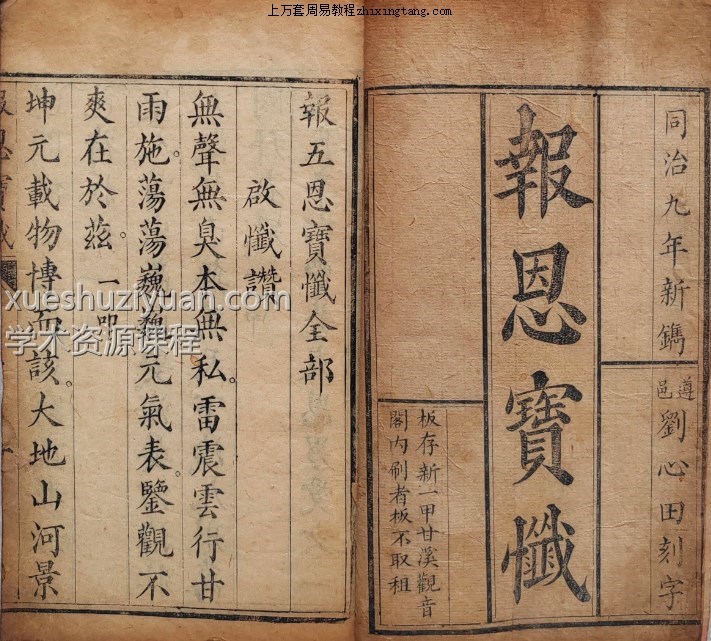 上万套周易教程zhixingtang.com
同治九年新鐫
遵邑劉心田刻字
報恩寶懺
板存新一甲甘溪觀音
閣內刷者板不取租
報五恩寶懺全部
啟懺讚
無聲無臭本無私。雷震雲行甘
雨施。蕩蕩巍巍元氣表。鑒觀不
爽在於茲。一叩
坤元載物博而該。大地山河景
報恩寶懺
xueshuziyuan.com
学术资源课程